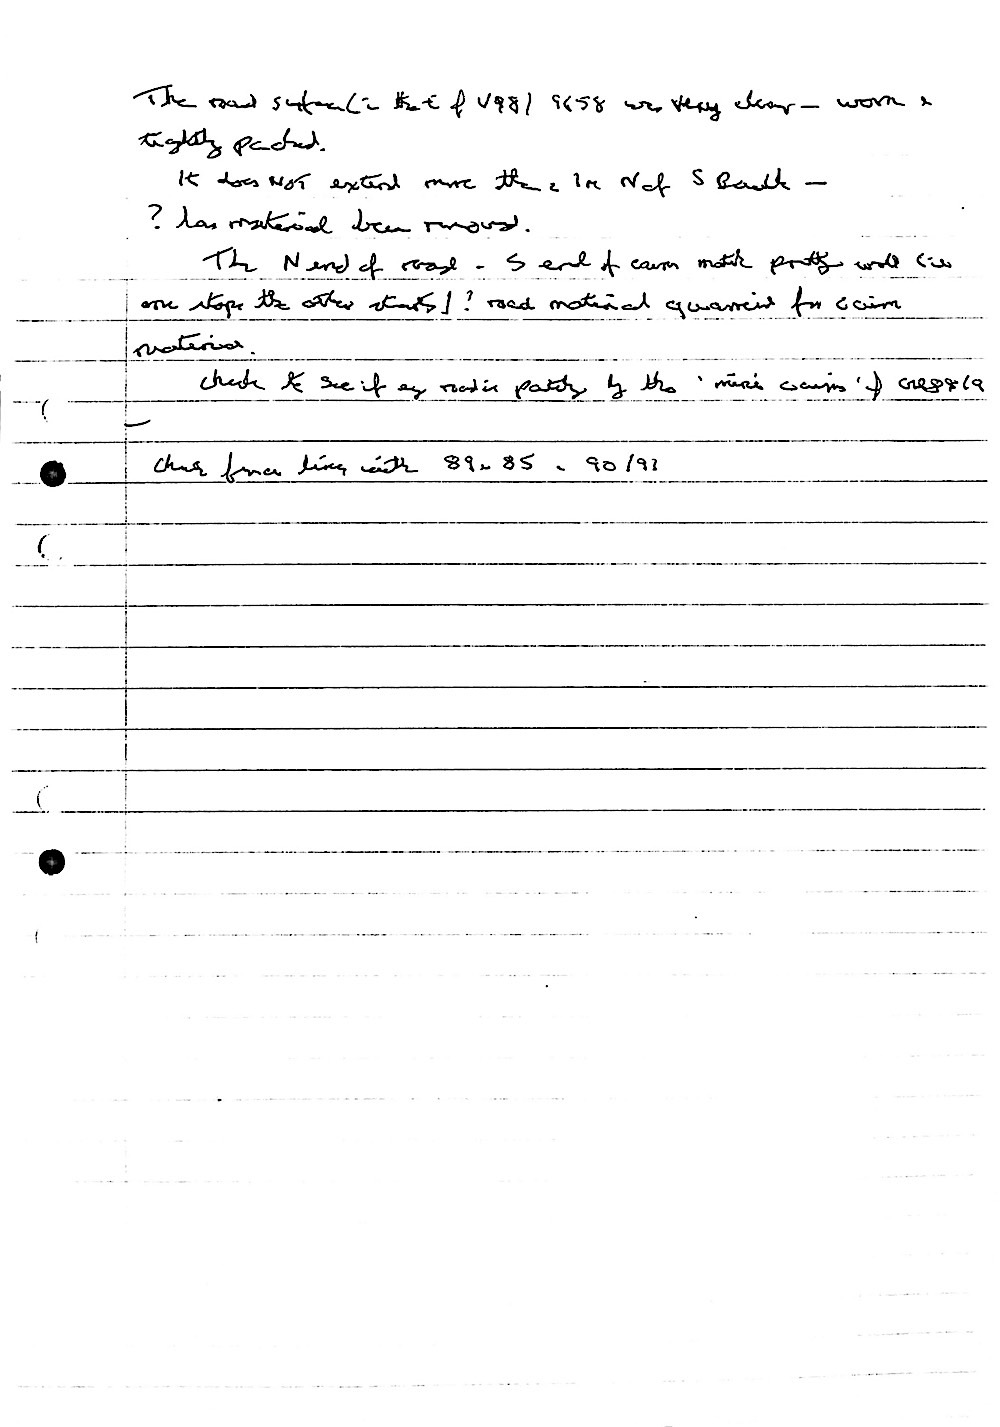 The road surface (in that of V981 9658 was very clear – worn &
tightly packed.
It does NOT extend more than 1m N of S Baulk –
? has material been removed.
The N end of road - S end of cairn match pretty well (ie
one stops the other starts) ? road material quarried for cairn
material.
check to see if any road patch by the 'mini cairns' of
fence line with 89 - 85 - 90/91